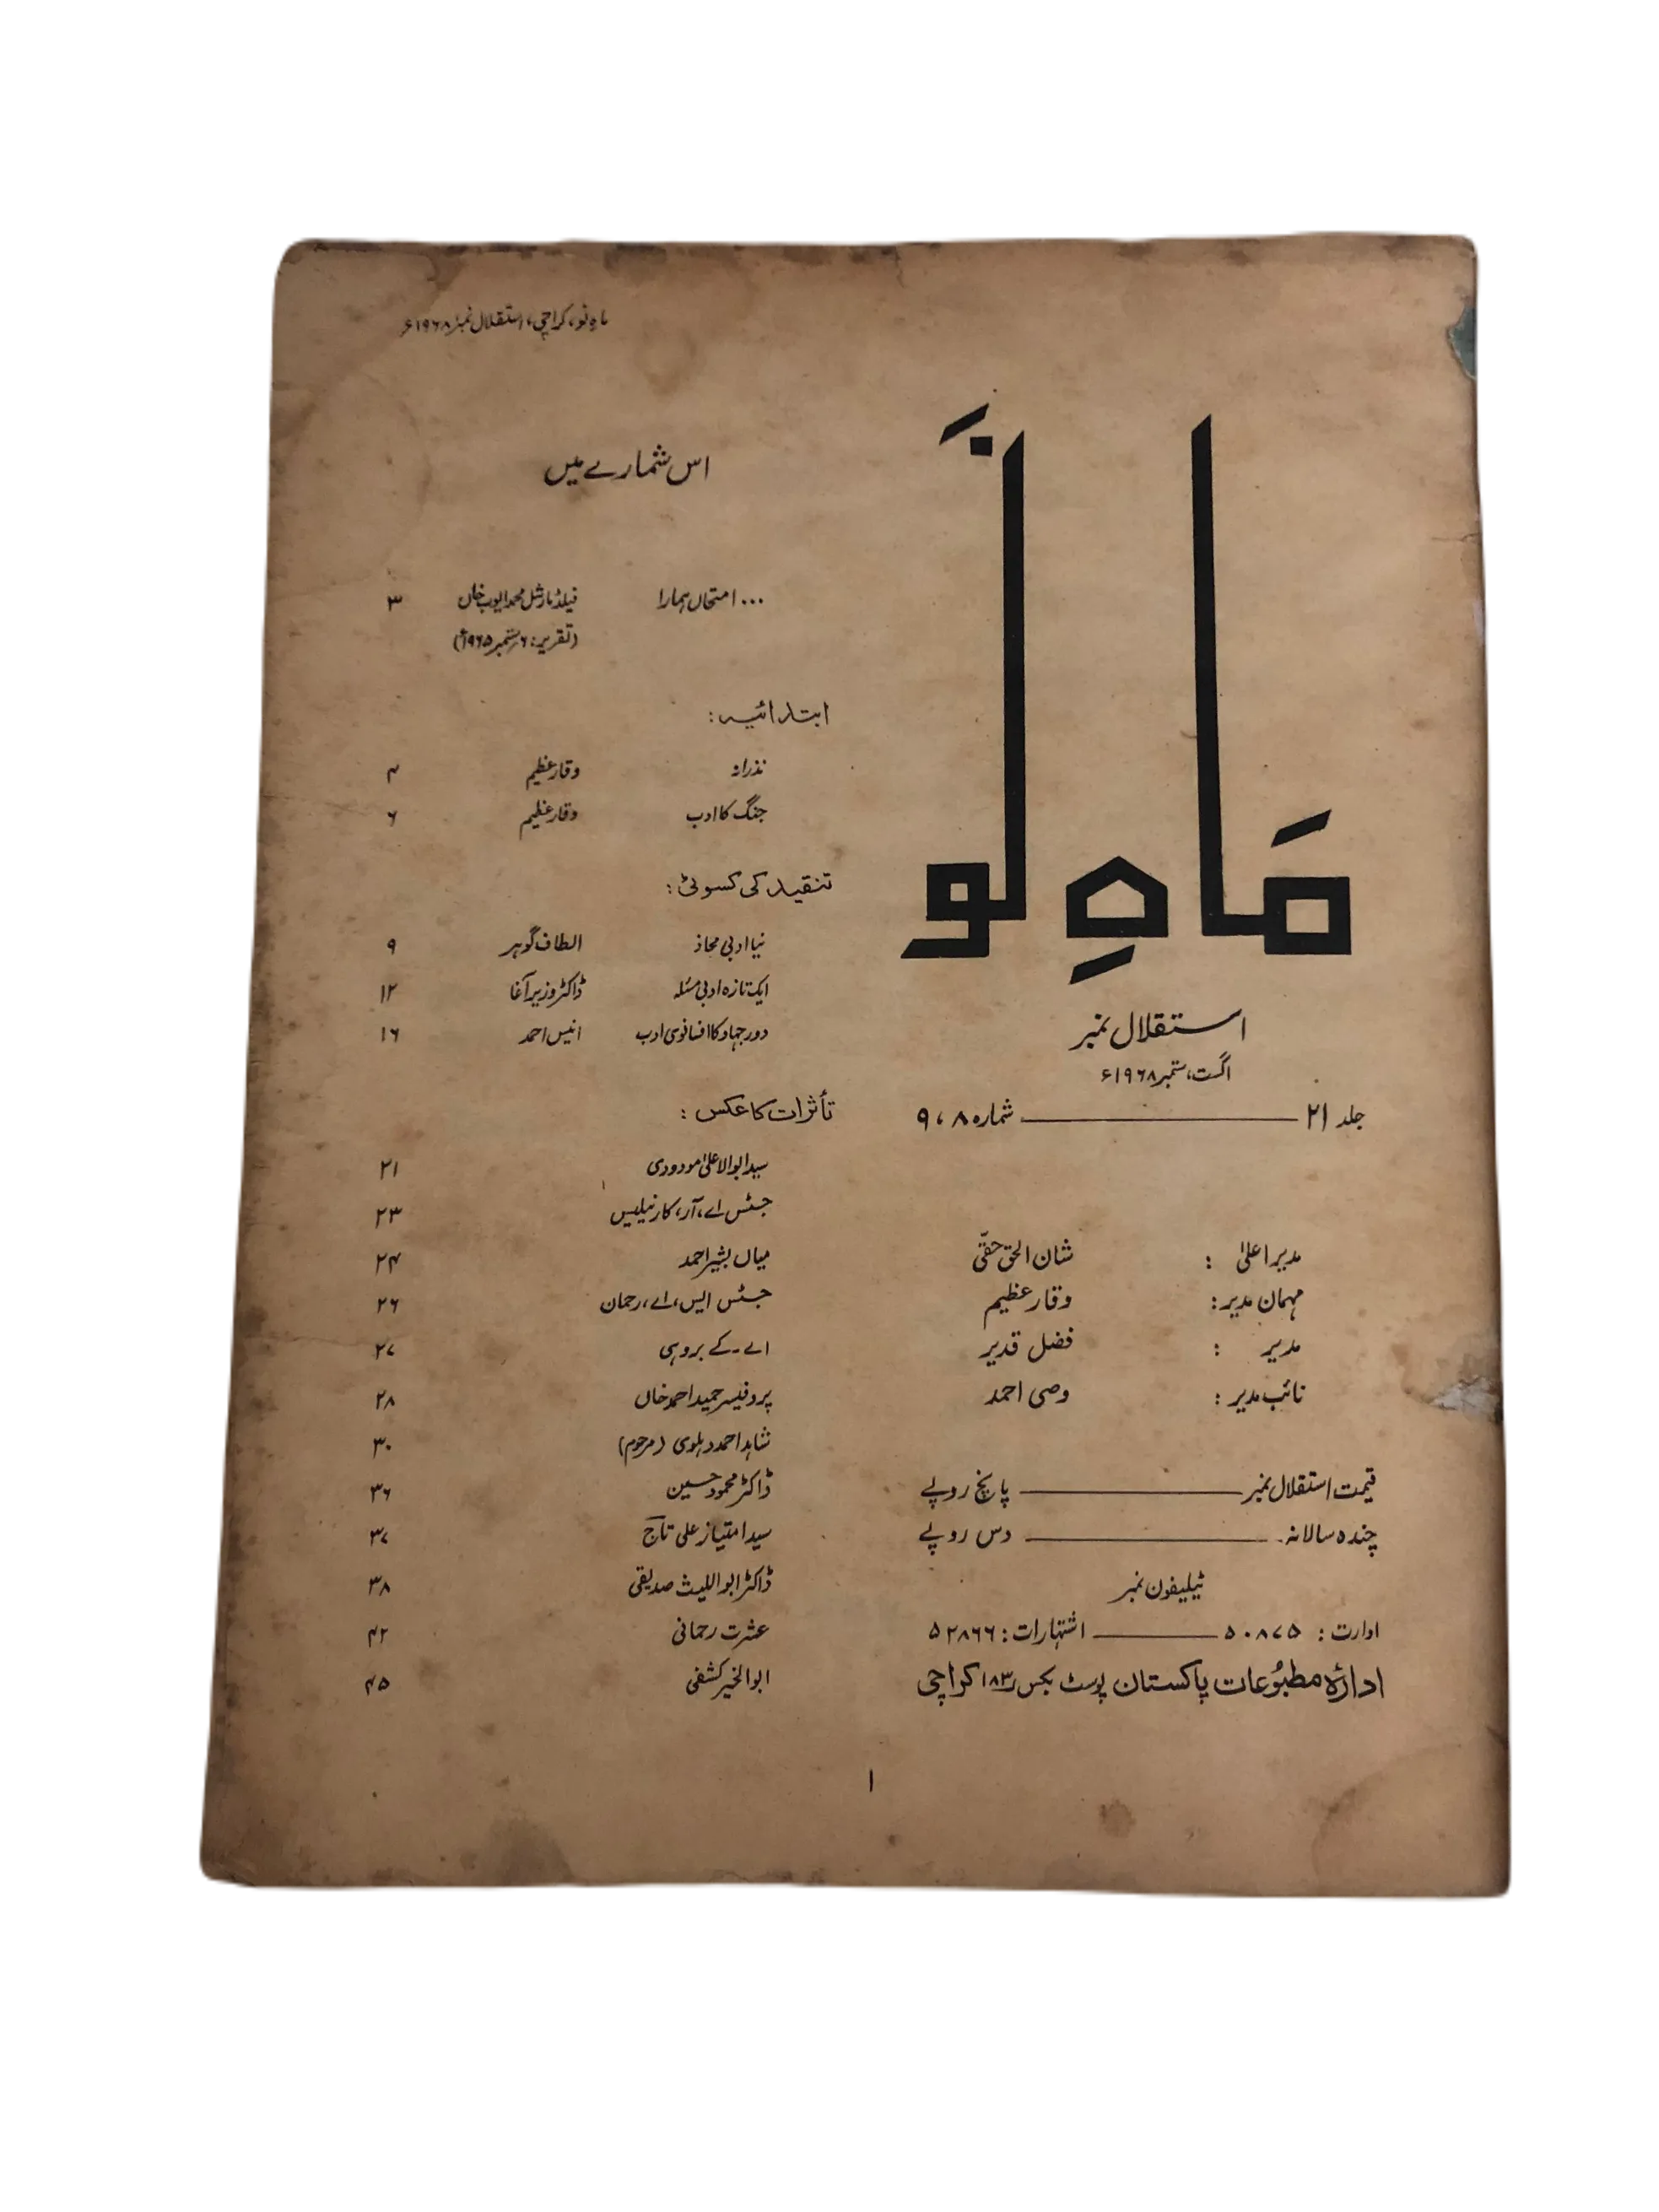 ماہ نو، کراچی، استقلال نمبر ۱۹۶۸ء
مَاہِ نَو
استقلال نمبر
اگست، ستمبر ۱۹۶۸ء
جلد ۲۱ ——— شمارہ ۸، ۹
مدیر اعلیٰ : شان الحق حقّی
مہمان مدیر : وقار عظیم
مدیر : فضل قدیر
نائب مدیر : وصی احمد
قیمت استقلال نمبر ——— پانچ روپے
چندہ سالانہ ——— دس روپے
ٹیلیفون نمبر
ادارت : ۵۰۸۷۵ ——— اشتہارات : ۵۲۸۶۶
ادارۂ مطبُوعات پاکستان پوسٹ بکس ۱۸۳ کراچی
اس شمارے میں
... امتحاں ہمارا فیلڈ مارشل محمد ایوب خاں ۳
(تقریر: ۶ ستمبر ۱۹۶۵ء)
ابتدائیہ :
نذرانہ وقار عظیم ۴
جنگ کا ادب وقار عظیم ۶
تنقید کی کسوٹی :
نیا ادبی محاذ الطاف گوہر ۹
ایک تازہ ادبی مسئلہ ڈاکٹر وزیر آغا ۱۲
دور جہاد کا افسانوی ادب انیس احمد ۱۶
تأثرات کا عکس :
سید ابوالاعلیٰ مودودی ۲۱
جسٹس اے، آر، کارنیلیس ۲۳
میاں بشیر احمد ۲۴
جسٹس ایس، اے، رحمان ۲۶
اے۔ کے بروہی ۲۷
پروفیسر حمید احمد خاں ۲۸
شاہد احمد دہلوی (مرحوم) ۳۰
ڈاکٹر محمود حسین ۳۶
سید امتیاز علی تاج ۳۷
ڈاکٹر ابواللیث صدیقی ۳۸
عشرت رحمانی ۴۲
ابوالخیر کشفی ۴۵
۱